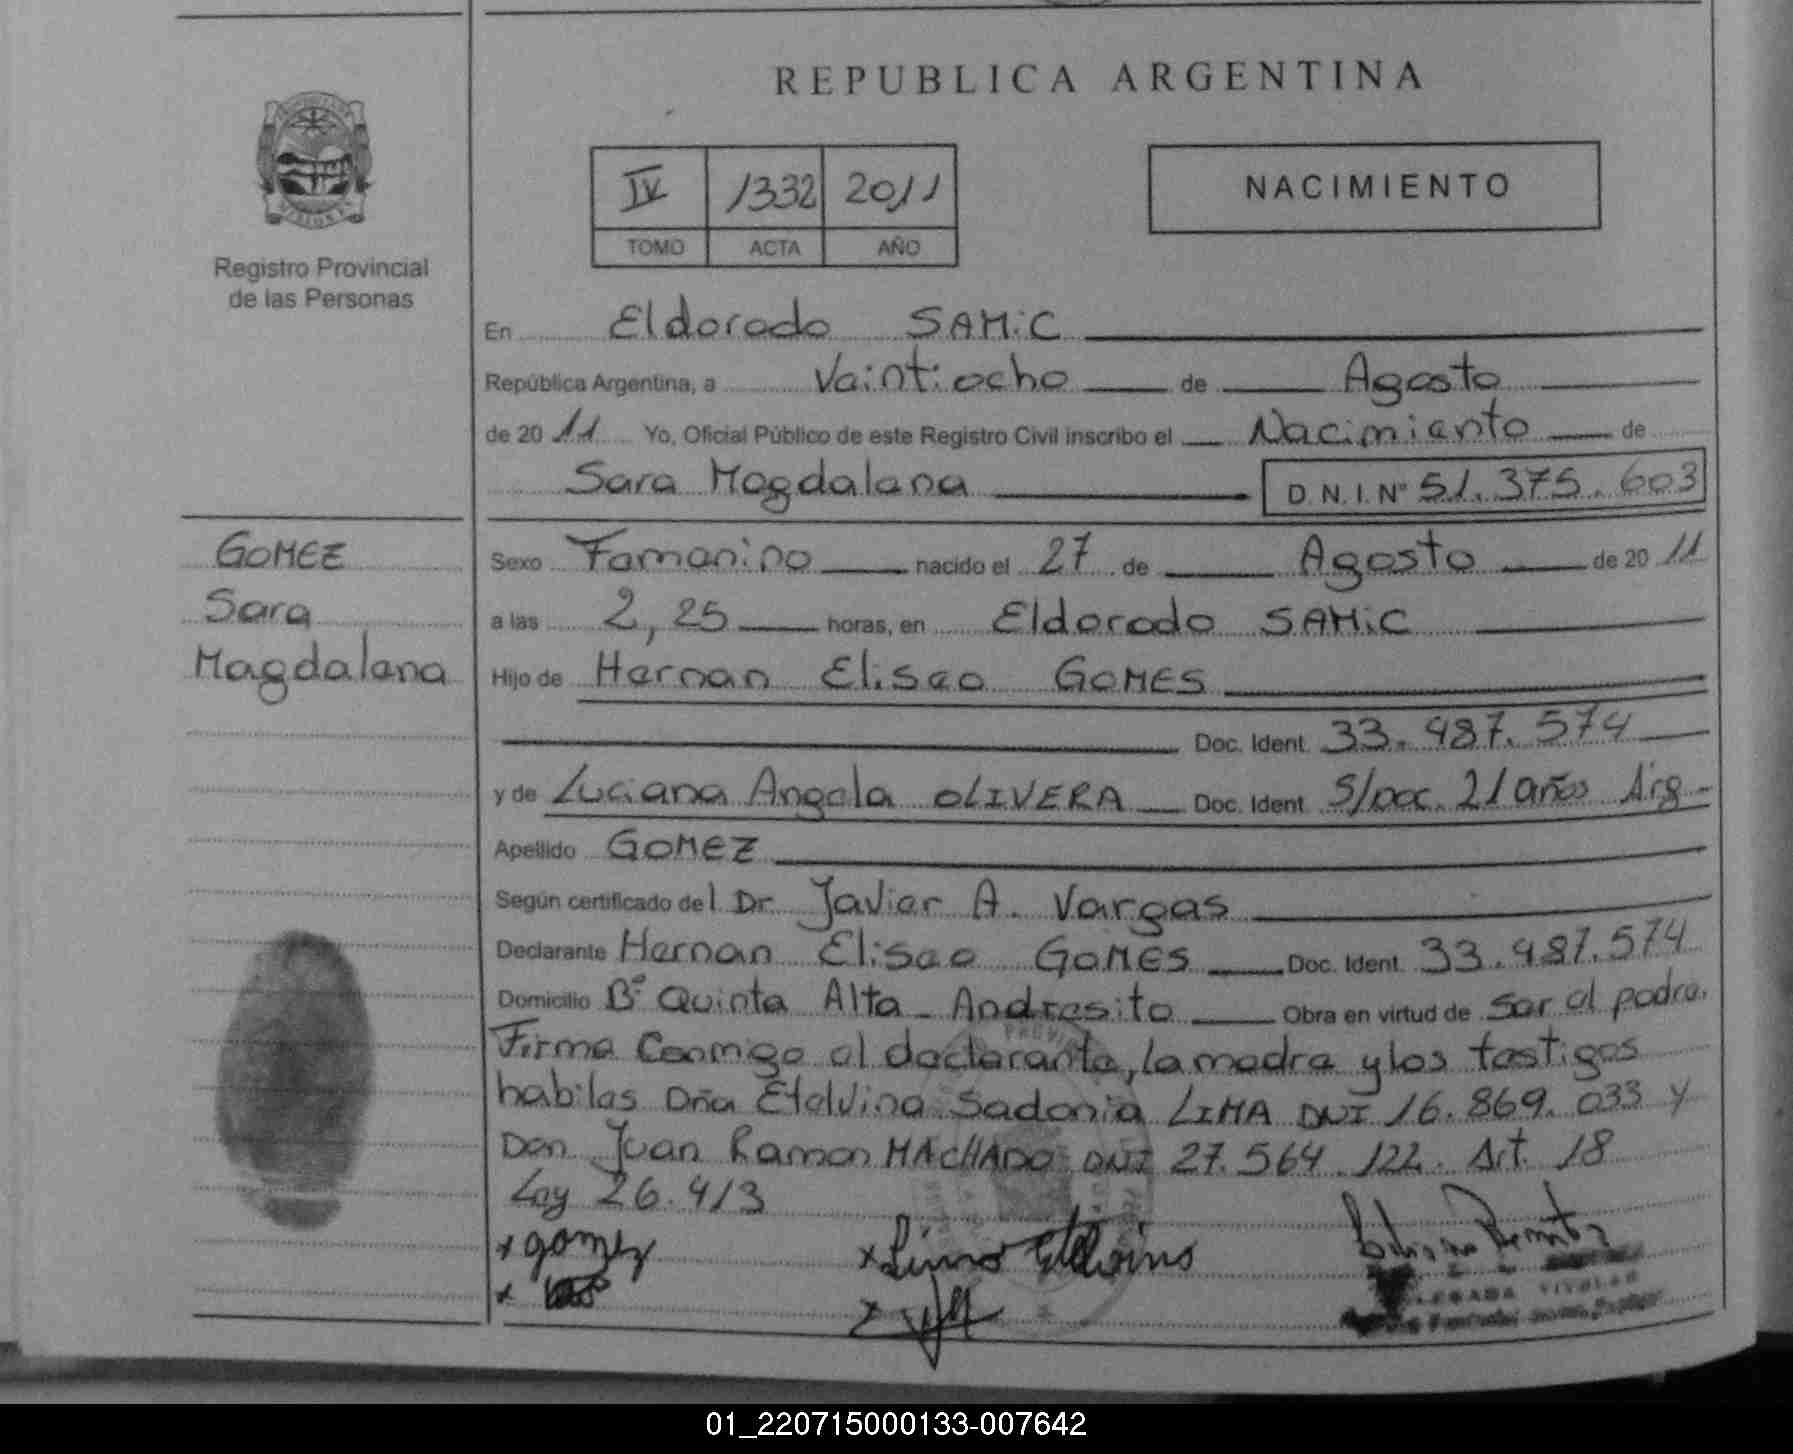 REPUBLICA ARGENTINA
IV 1332 2011
TOMO ACTA AÑO
NACIMIENTO
Registro Provincial
de las Personas
En Eldorado SAMiC
República Argentina, a Veintiocho de Agosto
de 2011 Yo, Oficial Público de este Registro Civil inscribo el Nacimiento de
Sara Magdalena D.N.I.Nº 51.375.603
GOMEZ
Sara
Magdalena
Sexo Femenino nacido el 27 de Agosto de 2011
a las 2,25 horas, en Eldorado SAMiC
Hijo de Hernan Eliseo GOMES
Doc. Ident. 33.487.574
y de Luciana Angela OLIVERA Doc. Ident. S/Doc. 21 años Arg-
Apellido GOMEZ
Según certificado del Dr. Javier A. Vargas
Declarante Hernan Eliseo GOMES Doc. Ident. 33.487.574
Domicilio Bº Quinta Alta - Andresito Obra en virtud de ser el padre.
Firma Conmigo el declarante, la madre y los testigos
habiles Dña Etelvina Sedonia LIMA DNI 16.869.033 y
Don Juan Ramon MACHADO DNI 27.564.122. Art. 18
Ley 26.413
x gomez
x Lima Etelvina
01_220715000133-007642